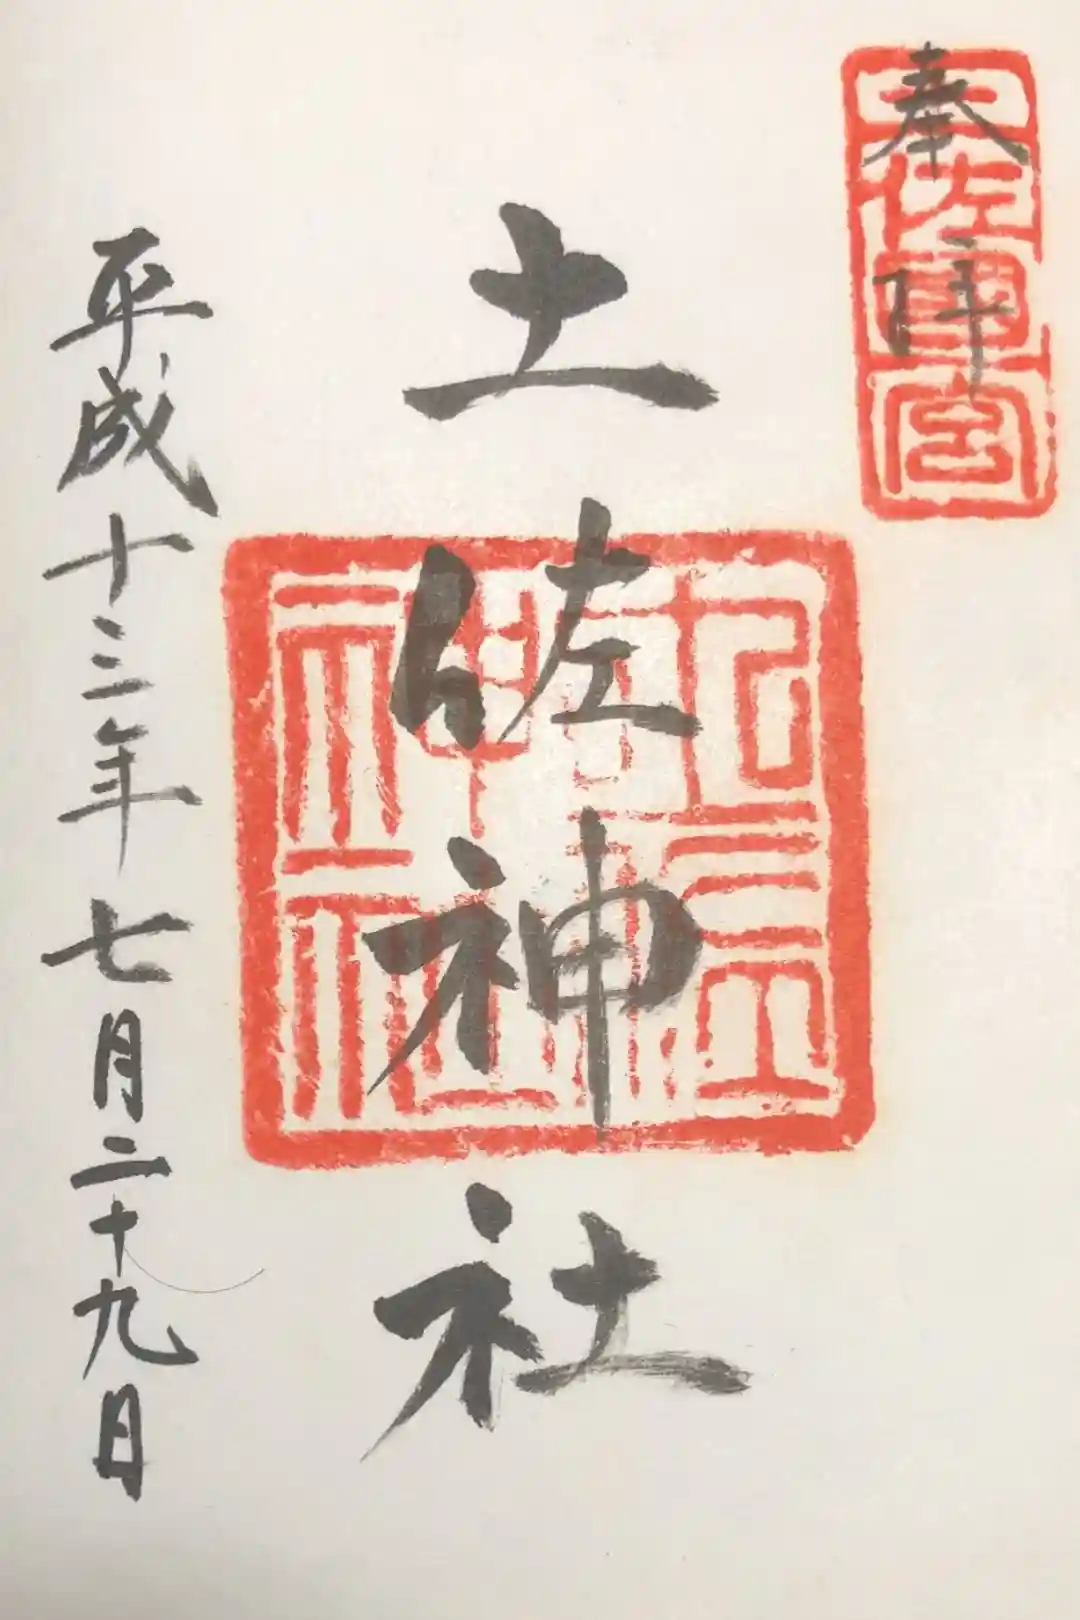 奉拝
土佐國一宮
土佐神社
平成十三年七月二十九日